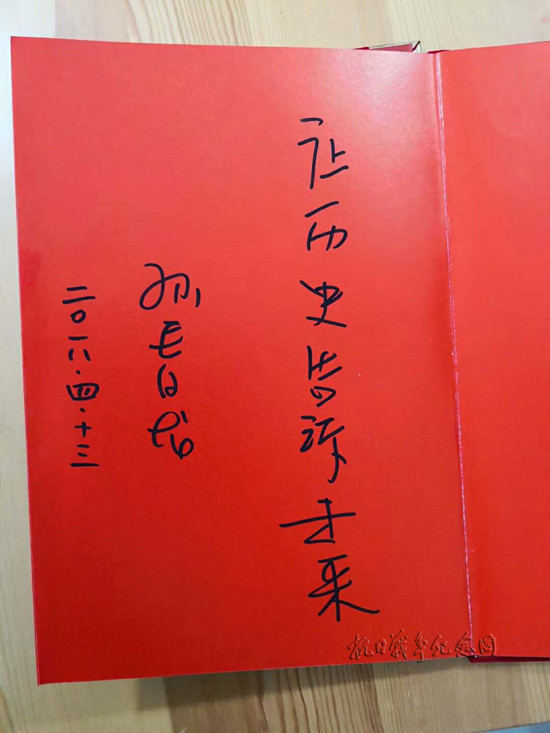 让历史告诉未来
孙春龙
二〇一八·四·十三
抗日战争纪念网